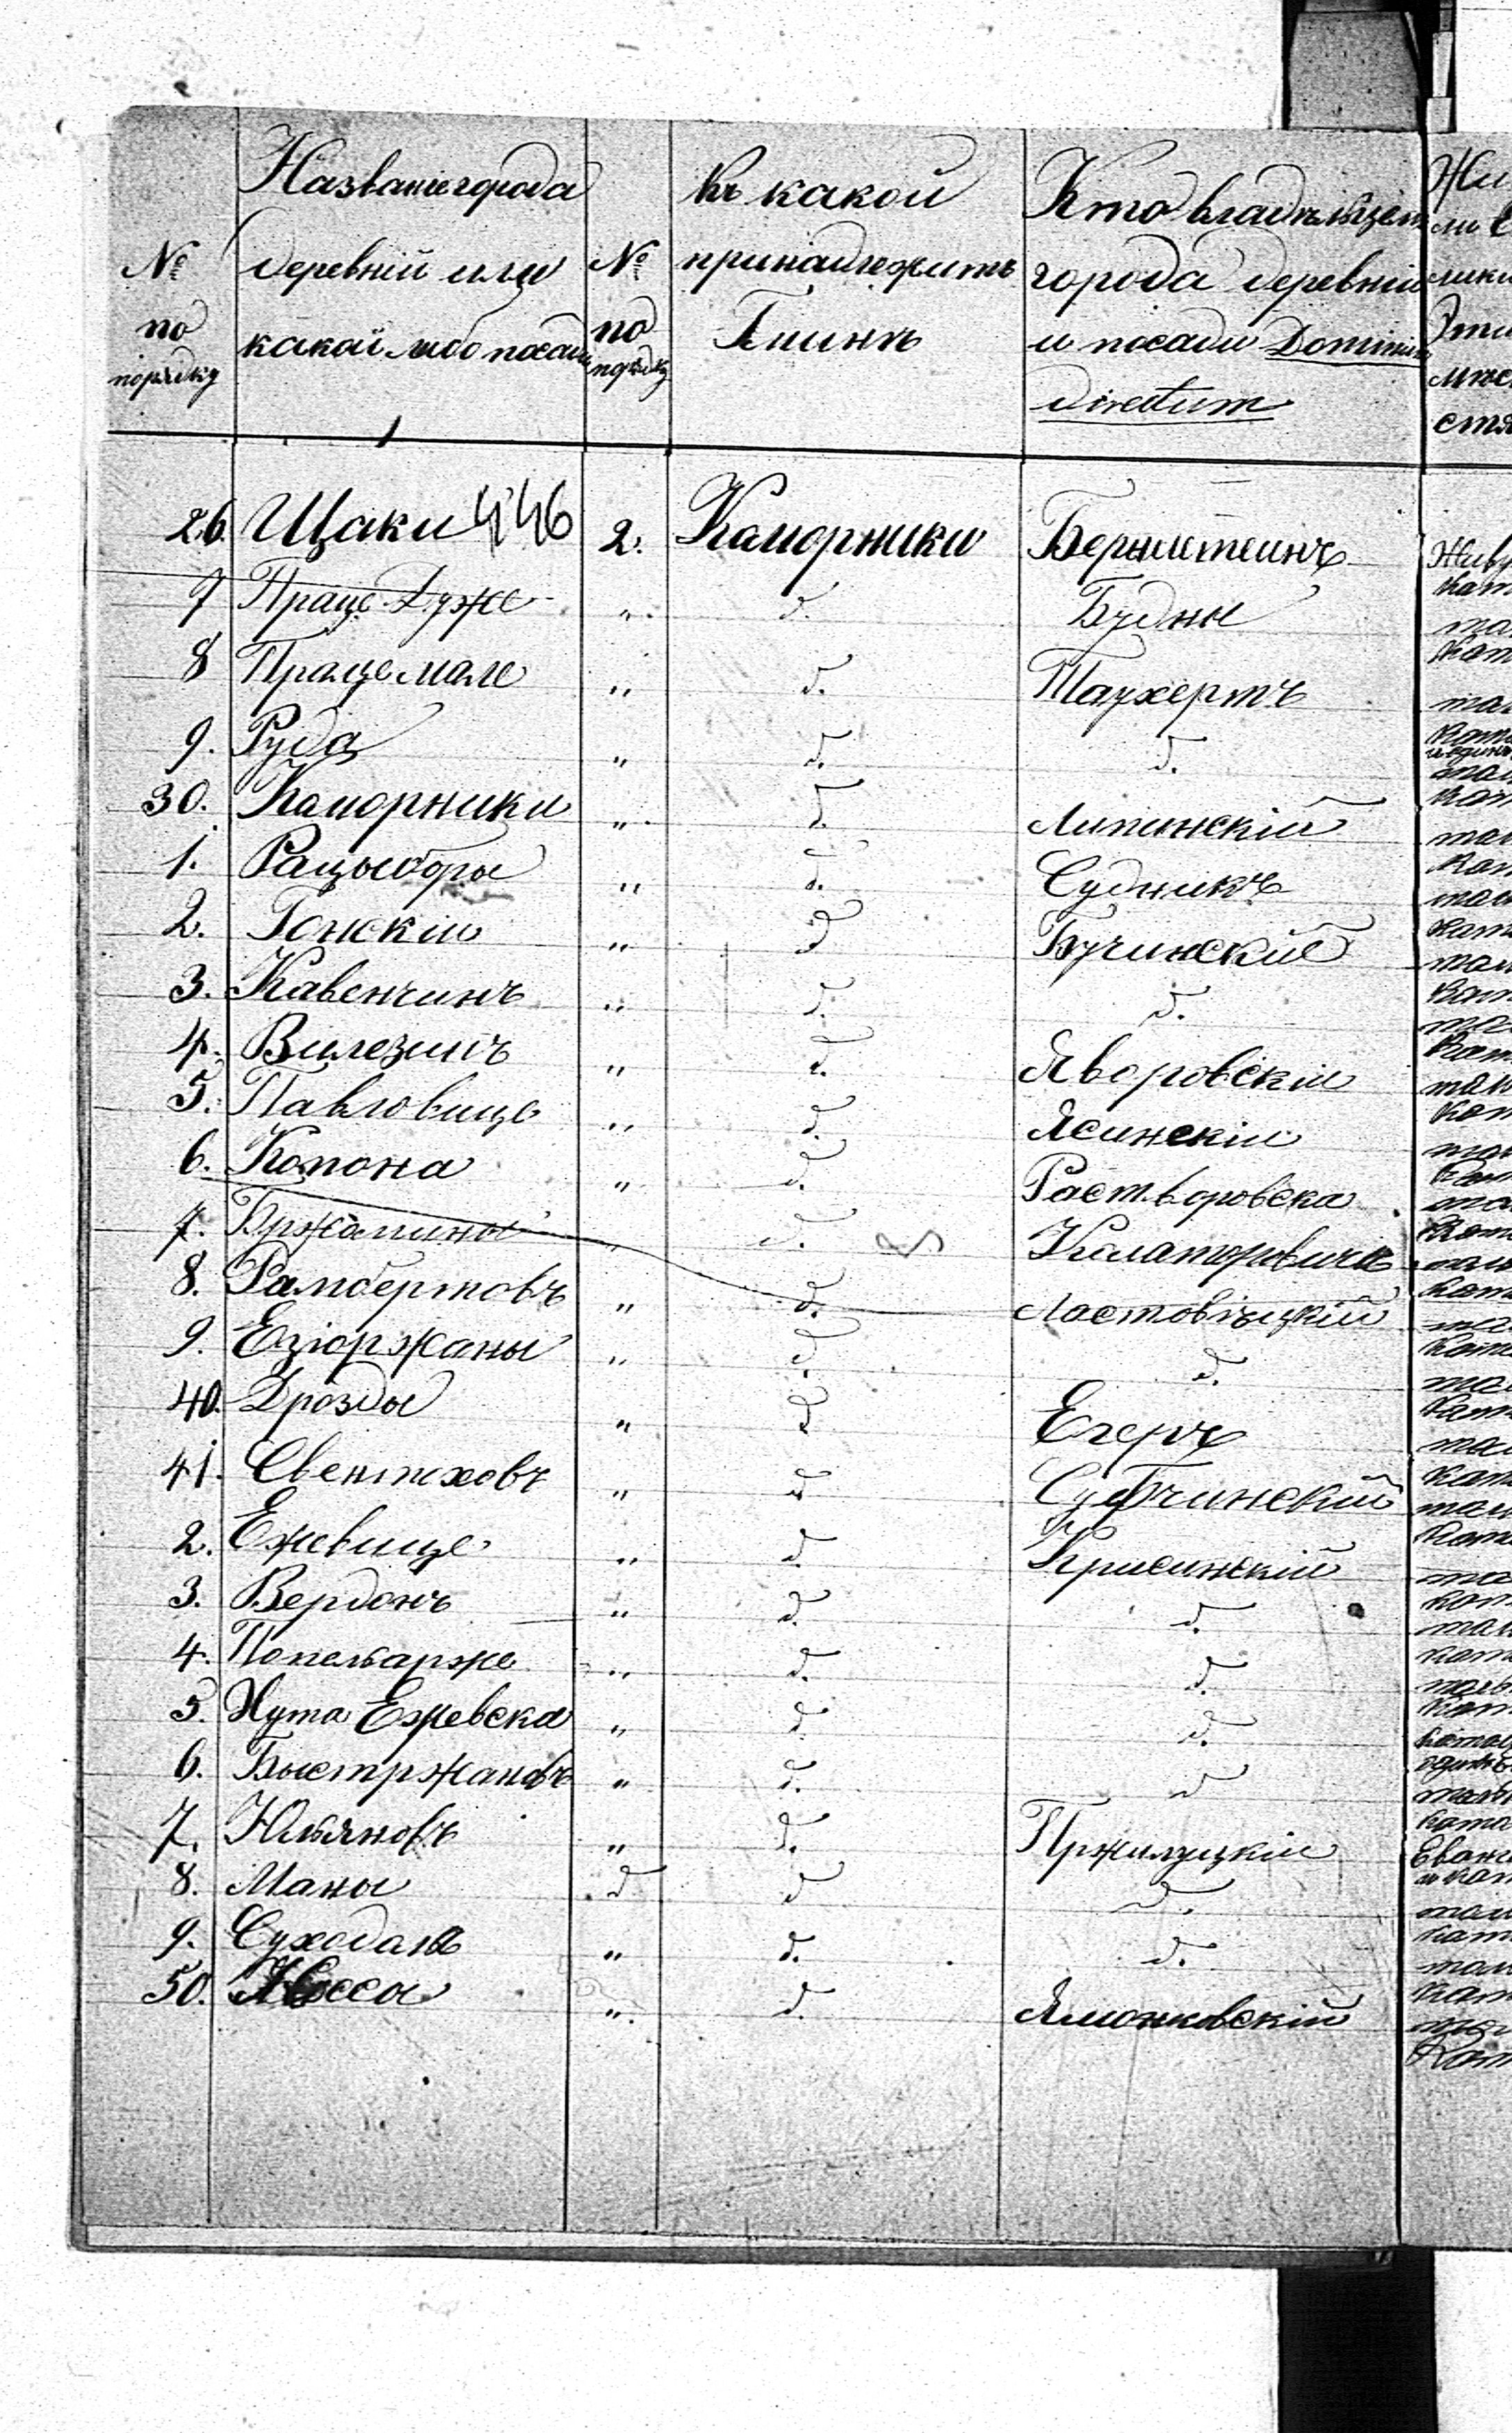 № по порядку | Названiе города деревнiй или какой либо посады | № по порядку | къ какой принадлежитъ Гминѣ | Кто владѣльцемъ города деревнiй и посады Dominium Directum
1
26. Щаки 446 2. Каморники Бернштеинъ
7 Праце Дуже " д. Будны
8 Праце мале " д. Таухертъ
9. Руда " д. д.
30. Каморники " д. Липинскiй
1. Рацыборы " д. Судникъ
2. Гонскiи " д Бучинскiй
3. Кавенчинъ " д. д.
4. Вилезинъ " д. Яворовскiи
5. Павловице " д. Ясинскiи
6. Копона " д. Растворовска
7. Бржамины " д.
8. Рамбертовъ " д. Ластовѣцкiй
9. Езiоржаны " д д.
40. Дрозды " д Егеръ
41. Свентховъ " д
2. Ежевице " д. Крисинскiй
3. Вердонъ " д. д.
4. Попеларже " д. д.
5. Хута Ежевска " д д.
6. Быстржановъ " д. д
7. Юльяновъ " д. Пржилуцкiи
8. Маны д д д.
9. Суходолъ " д. д.
50. " д. Ямонковскiй